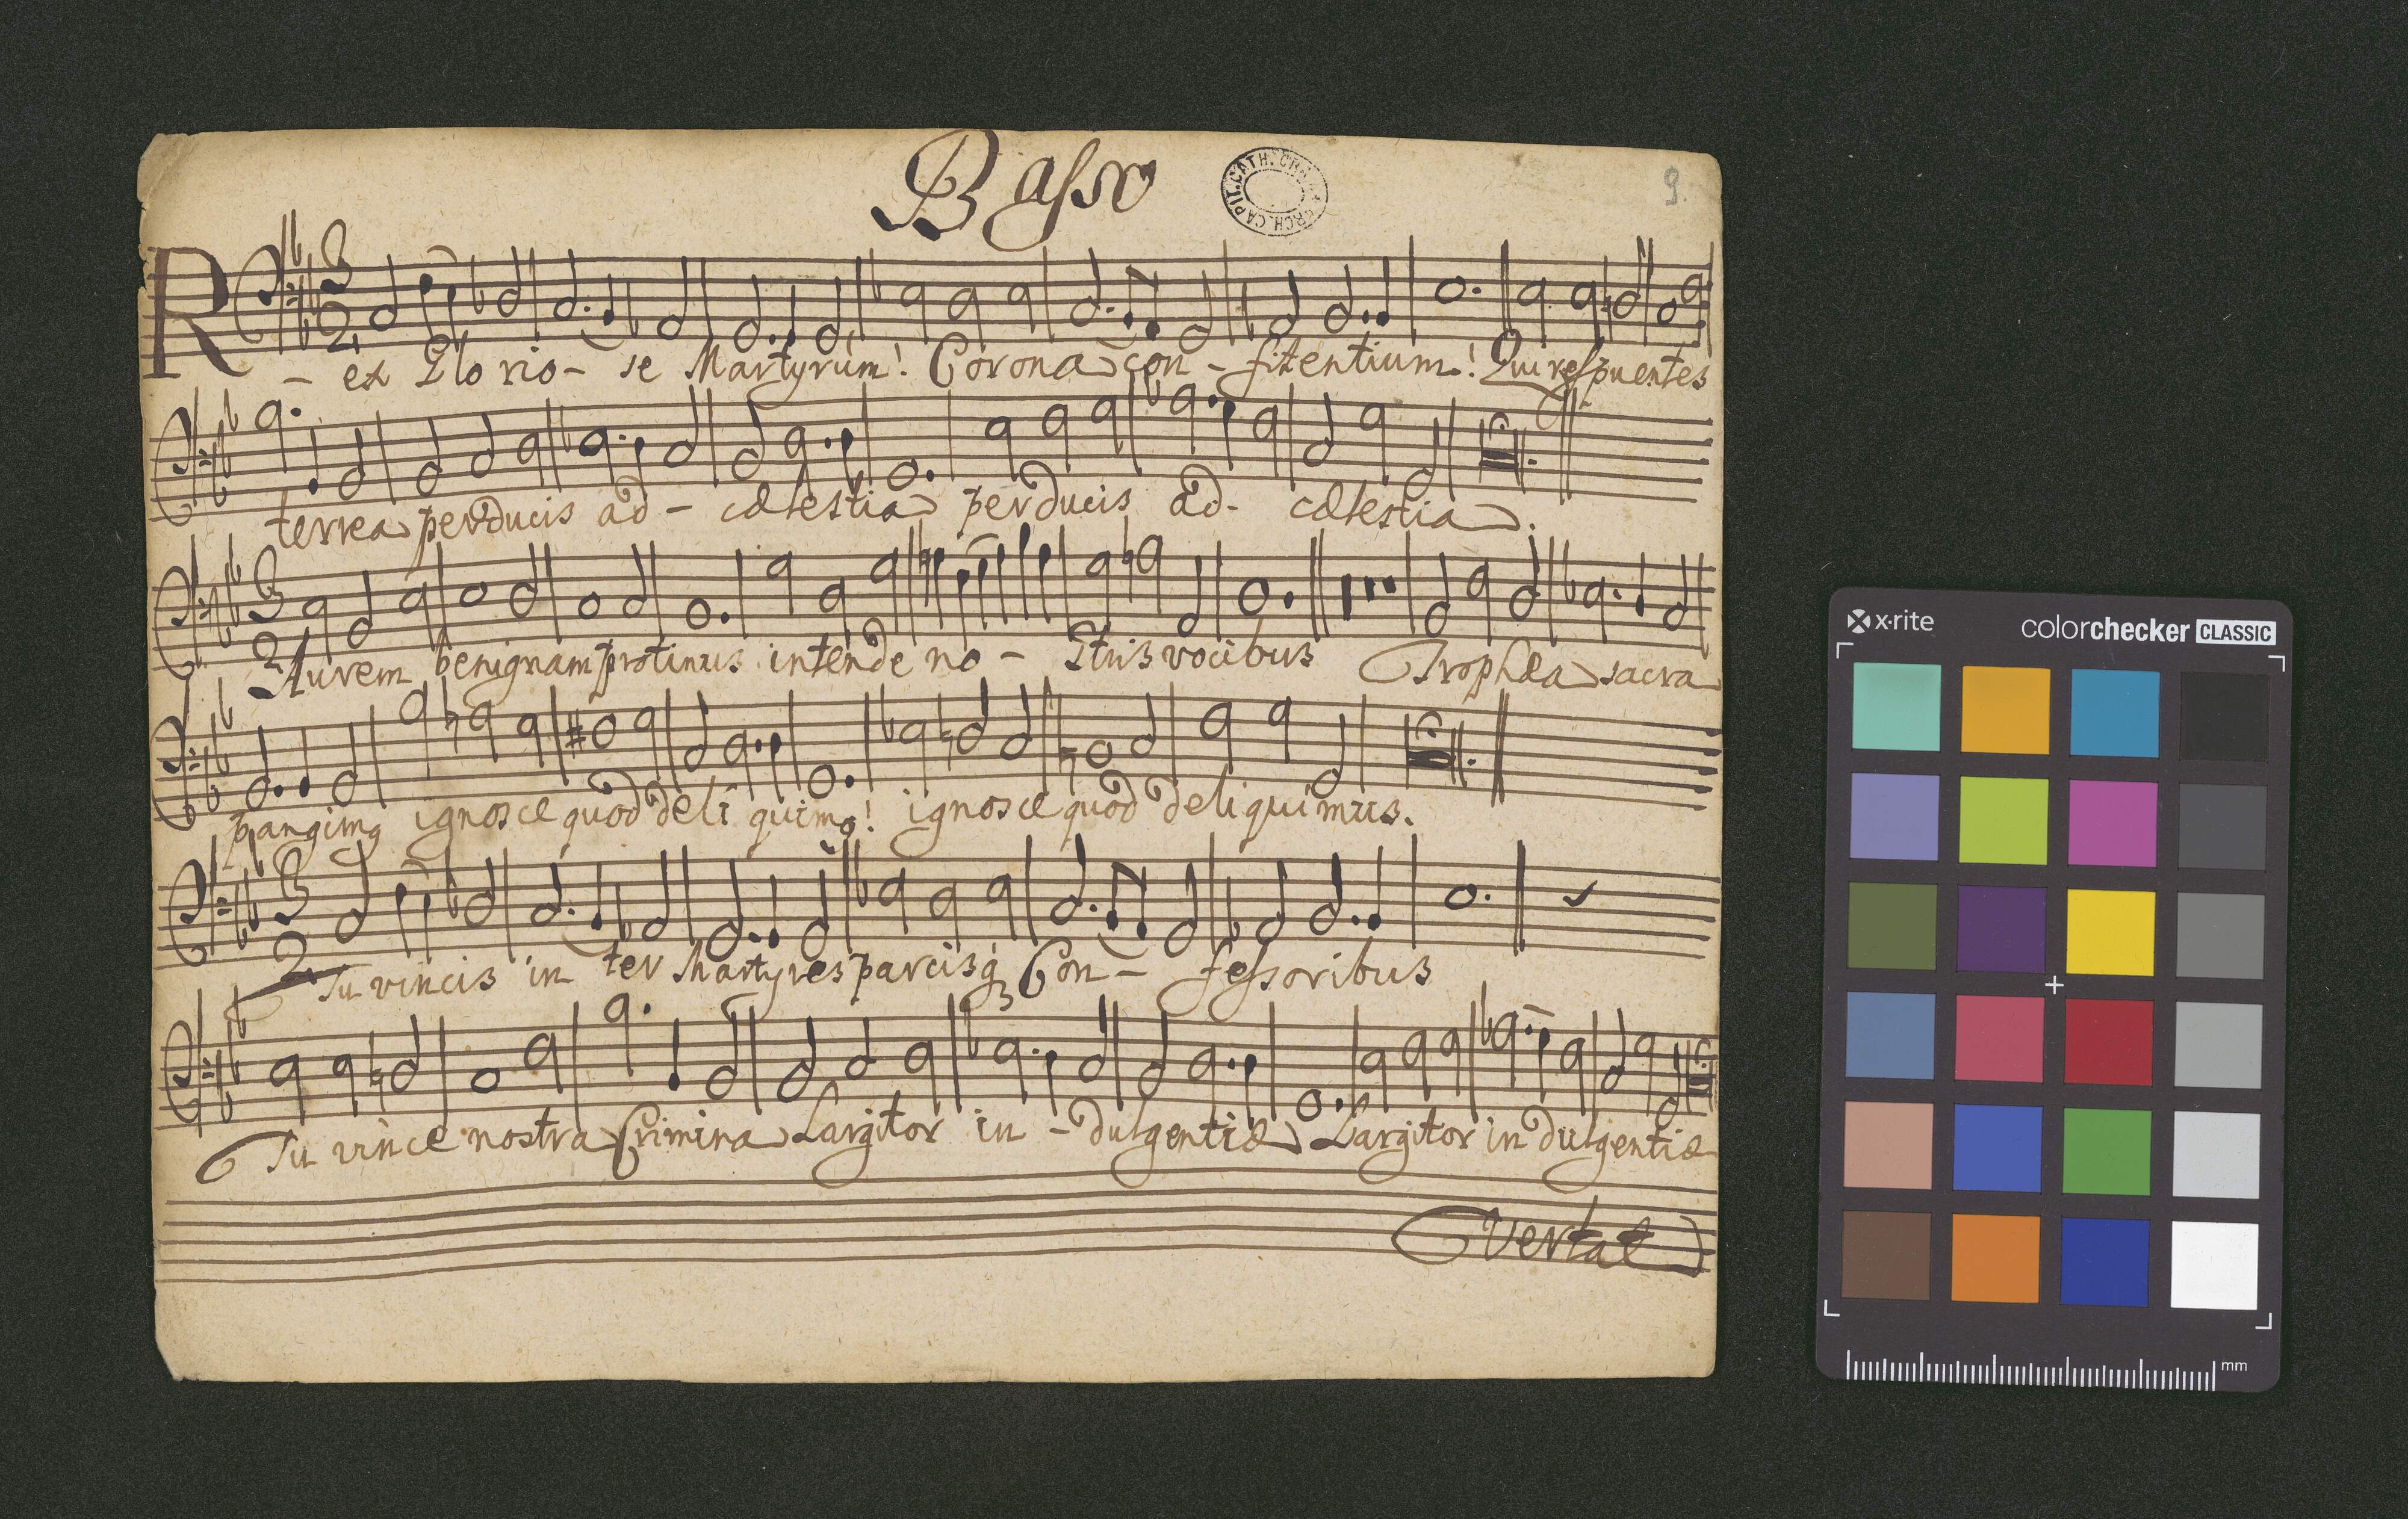 Basso
9.
Rex Glorio- se Martyrum! Corona con - fitentium! Qui respuentes
terrea perducis ad - cælestia perducis ad- cælestia.
Aurem benignam protinus intende no - stris vocibus Trophæa sacra
pangimg ignosce quod deli quimg! ignosce quod deliquimus.
Tu vincis in ter Martyres parcisq Con - fessoribus
Tu vince nostra Crimina Largitor in - dulgentiæ Largitor indulgentiæ
Vertat
x·rite
colorchecker CLASSIC
mm